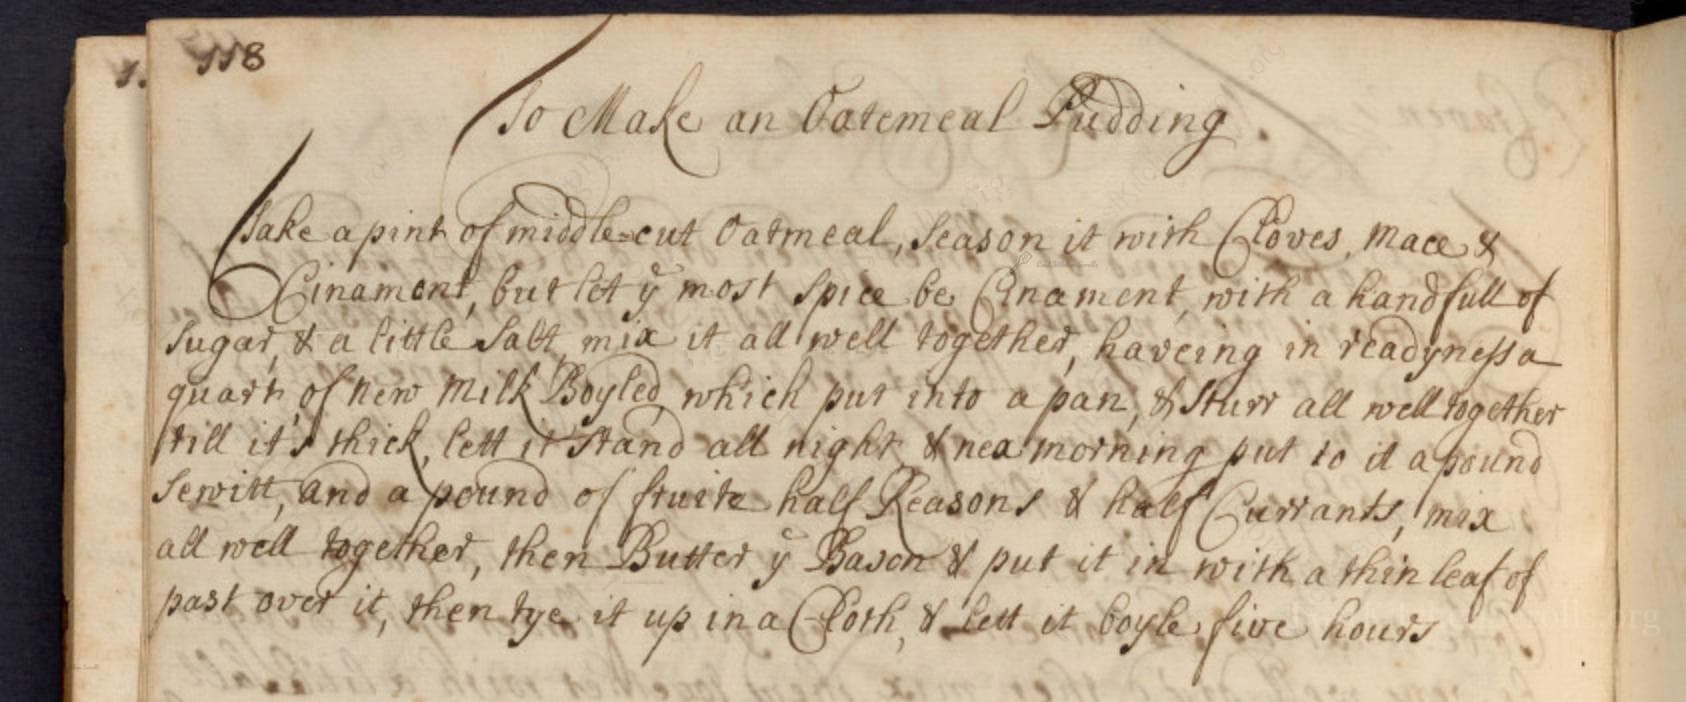 118
To Make an Oatemeal Pudding
Take a pint of middle=cut Oatmeal, season it with Cloves, mace &
Cinament, but let yͤ most spice be Cinament, with a handfull of
sugar, & a little salt, mix it all well together, haveing in readyness a
quart of new milk Boyled which put into a pan, & sturr all well together
till it's thick, lett it stand all night & nex morning put to it a pound
sewitt, and a pound of fruite half Reasons & half Currants, mix
all well together, then Butter yͤ Bason & put it in with a thin leaf of
past over it, then tye it up in a Cloth, & lett it boyle five hours